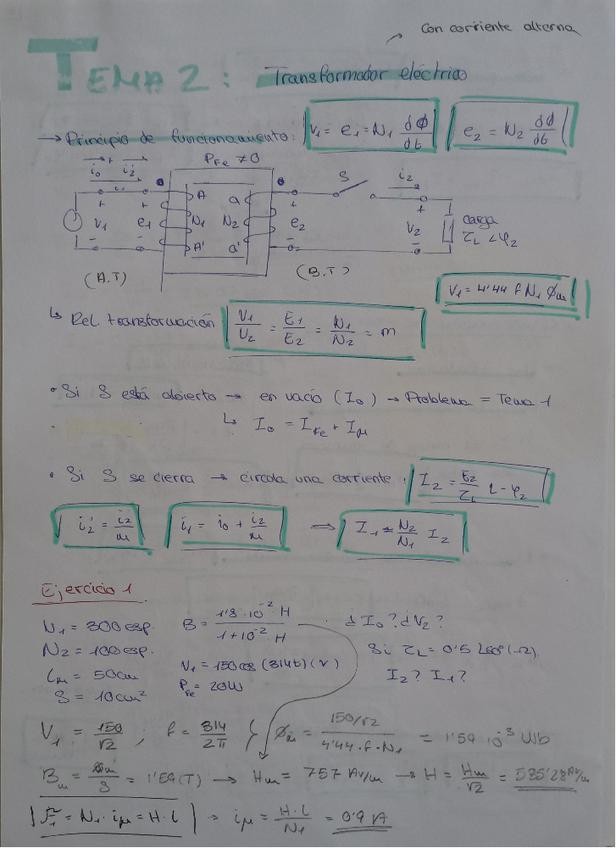 Con corriente alterna
TEMA 2: Transformador eléctrico
→ Principio de funcionamiento: V₁ = e₁ = N₁ dΦ/dt    e₂ = N₂ dΦ/dt
P_Fe ≠ 0
i₀ i₂' S i₂
+ + A a + +
V₁ e₁ N₁ N₂ e₂ V₂ carga
Z_L ∠φ₂
- - A' a' - -
(A.T) (B.T)
V₁ = 4'44 f N₁ Φm
↳ Rel. transformación V₁/V₂ = E₁/E₂ = N₁/N₂ = m
• Si S está abierto → en vacío (I₀) → Problema = Tema 1
↳ I₀ = I_Fe + Iμ
• Si S se cierra → circula una corriente: I₂ = E₂/Z_L ∠-φ₂
i₂' = i₂/m    i₁ = i₀ + i₂/m    ⇒ I₁ ≈ N₂/N₁ I₂
Ejercicio 1
N₁ = 300 esp. B = 1'3·10⁻² H / 1+10⁻² H ¿I₀? ¿V₂?
N₂ = 100 esp. V₁ = 150 cos (314t) (V) Si Z_L = 0'5 ∠60° (Ω)
Lm = 50cm P_Fe = 20W I₂? I₁?
S = 10cm²
V₁ = 150/√2 ; f = 314/2π } Φm = 150/√2 / 4'44·f·N₁ = 1'59 10⁻³ Wb
Bm = Φm/S = 1'59 (T) → Hm = 757 Av/m → H = Hm/√2 = 535'28 Av/m
F₁ = N₁·iμ = H·L → iμ = H·L/N₁ = 0'9 A